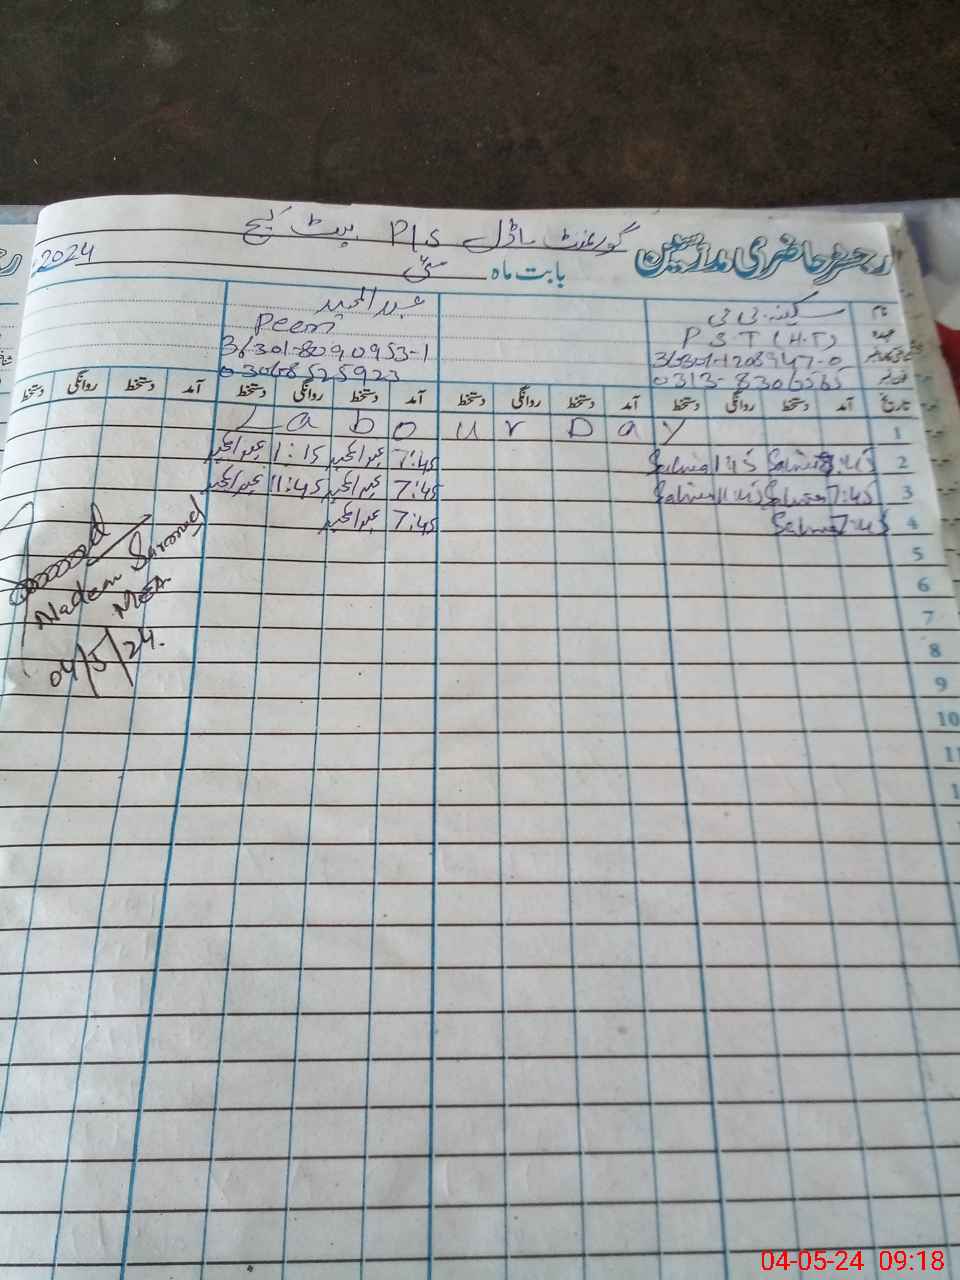 گورنمنٹ ماڈل P/S بیٹ کیچ
رجسٹر حاضری مدرسین بابت ماہ مئی 2024
نام سکینہ بی بی عبدالمجید
عہدہ P S T (H.T) Peon
36301-8090953-1
0306-8525923
0313-8306565
تاریخ آمد دستخط روانگی دستخط آمد دستخط روانگی دستخط آمد دستخط روانگی دستخط آمد دستخط روانگی دستخط
1 L a b o u r D a y
2 7:45 1:45 7:45 عبدالمجید 1:15 عبدالمجید
3 7:45 11:45 7:45 عبدالمجید 11:45 عبدالمجید
4 7:45 7:45 عبدالمجید
5
6
7
8
9
10
11
Nadeem Sarmad
MEA
04/5/24.
04-05-24 09:18